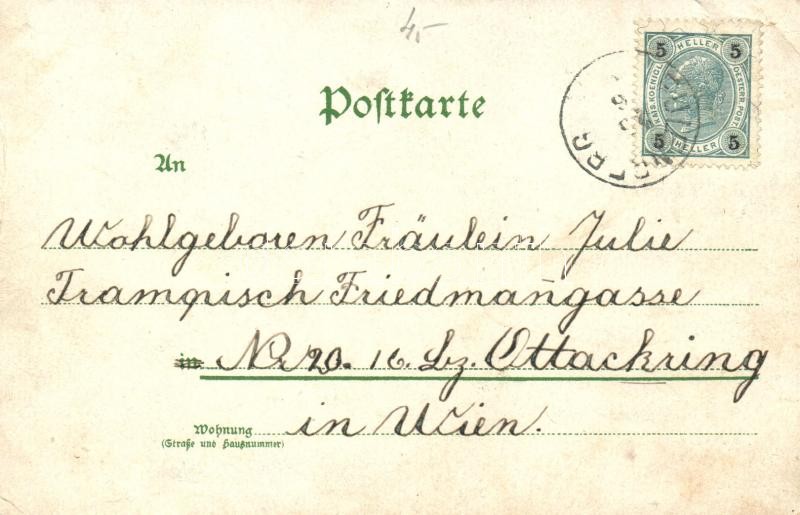 4.-
5 HELLER 5
KAIS. KOENIGL. OESTERR. POST.
5 HELLER 5
Postkarte
An
Wohlgeboren Fräulein Julie
Trampisch Friedman̄gasse
in Nr 20. 16. Bz. Ottackring
Wohnung in Wien.
(Straße und Hausnummer)